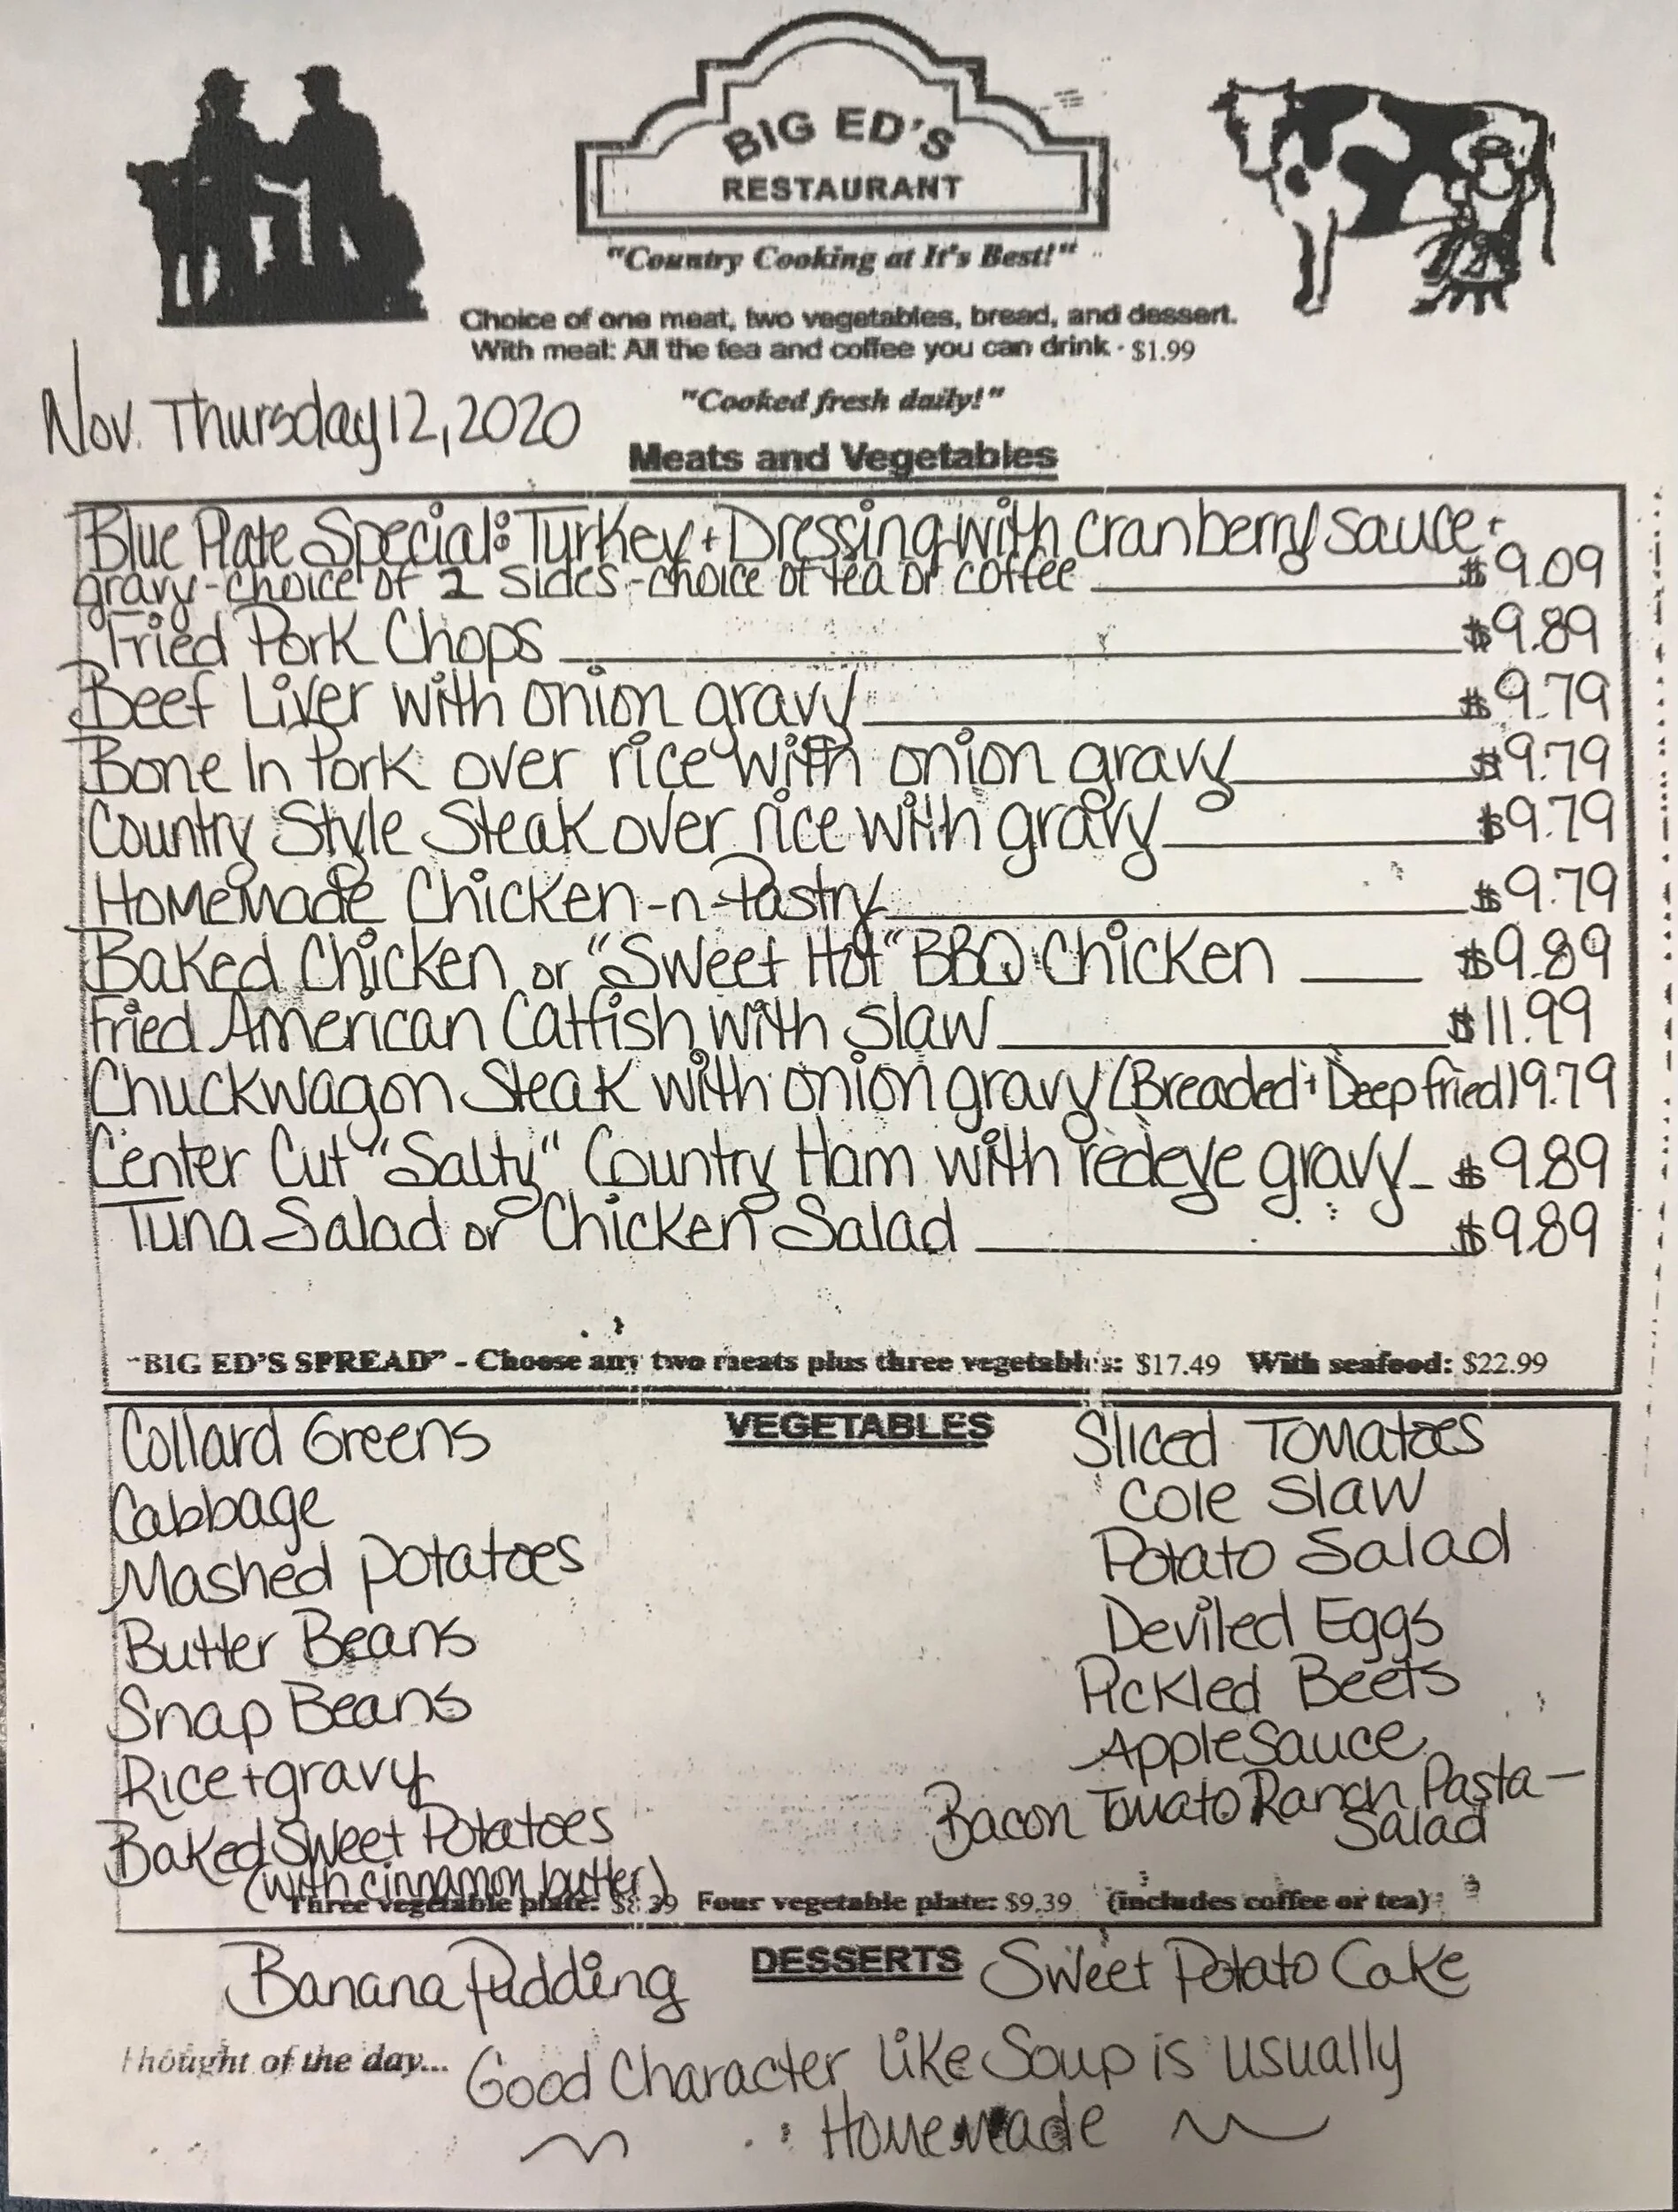 BIG ED'S
RESTAURANT
"Country Cooking at It's Best!"
Choice of one meat, two vegetables, bread, and dessert.
With meal: All the tea and coffee you can drink - $1.99
Nov. Thursday 12, 2020
"Cooked fresh daily!"
Meats and Vegetables
Blue Plate Special: Turkey + Dressing with cranberry sauce +
gravy - choice of 2 sides - choice of tea or coffee $9.09
Fried Pork Chops $9.89
Beef Liver with onion gravy $9.79
Bone In Pork over rice with onion gravy $9.79
Country Style Steak over rice with gravy $9.79
Homemade Chicken-n-Pastry $9.79
Baked Chicken or "Sweet Hot" BBQ Chicken $9.89
Fried American Catfish with slaw $11.99
Chuckwagon Steak with onion gravy (Breaded + Deep fried) 9.79
Center Cut "Salty" Country Ham with redeye gravy $9.89
Tuna Salad or Chicken Salad $9.89
"BIG ED'S SPREAD" - Choose any two meats plus three vegetables: $17.49 With seafood: $22.99
VEGETABLES
Collard Greens
Cabbage
Mashed Potatoes
Butter Beans
Snap Beans
Rice + gravy
Baked Sweet Potatoes
(with cinnamon butter)
Sliced Tomatoes
Cole Slaw
Potato Salad
Deviled Eggs
Pickled Beets
Applesauce
Bacon Tomato Ranch Pasta -
Salad
Three vegetable plate: $8.39 Four vegetable plate: $9.39 (includes coffee or tea)
DESSERTS
Banana Pudding
Sweet Potato Cake
Thought of the day... Good Character like Soup is usually
Homemade